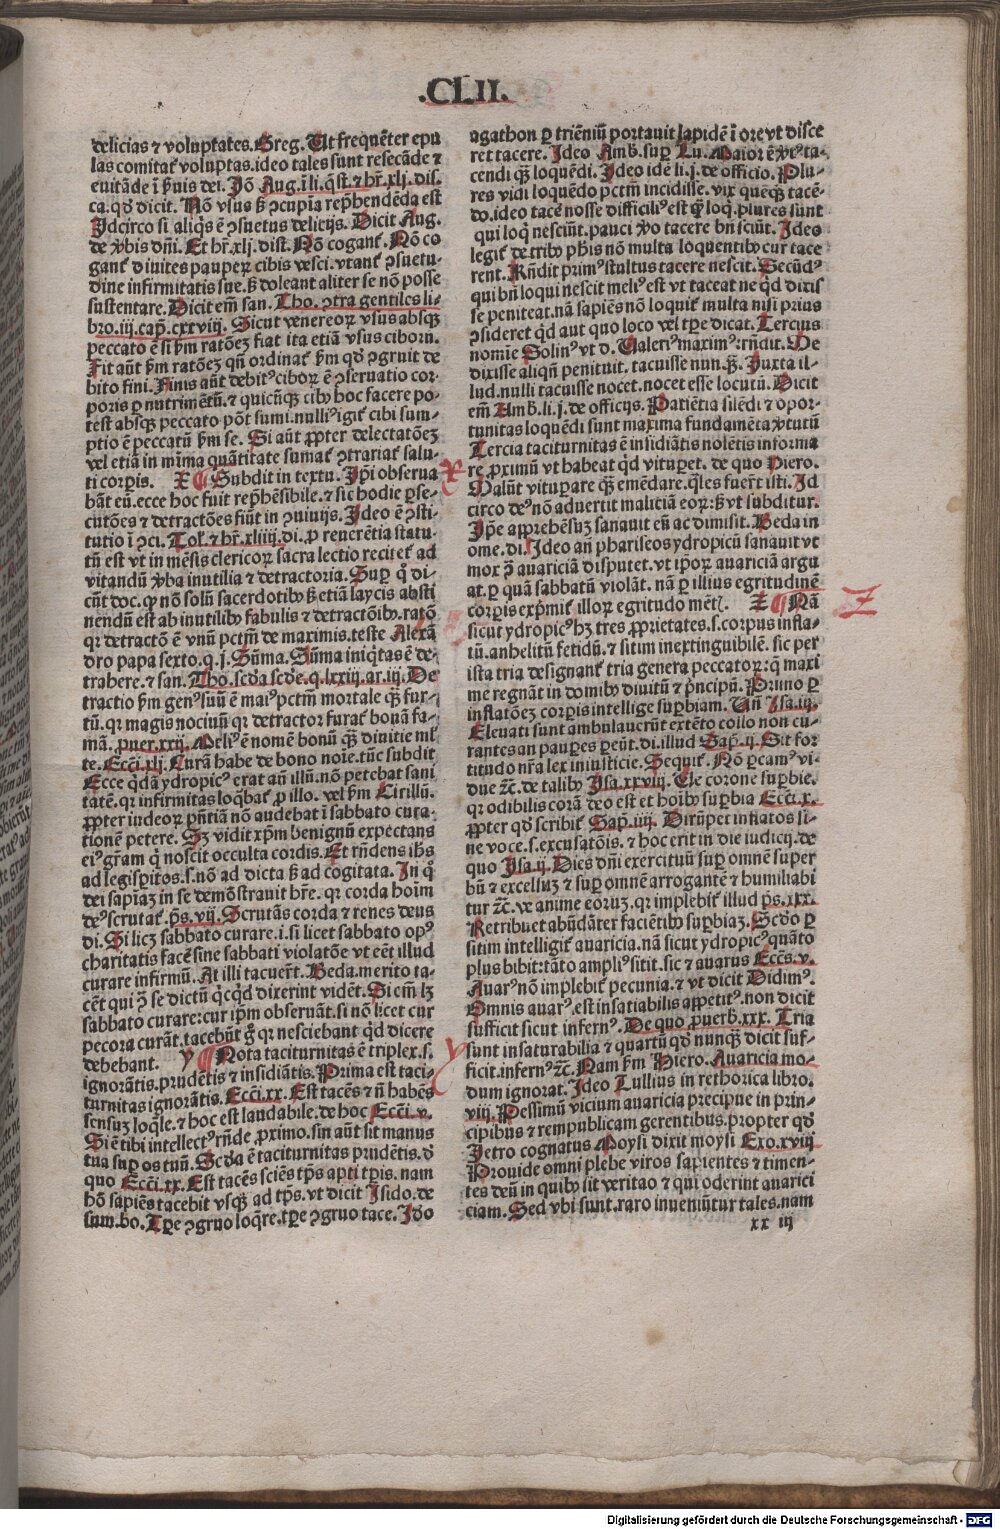 .CLII.
delicias ⁊ voluptates. Greg. Ut frequēter epu
las comitat᷑ voluptas. ideo tales sunt resecāde ⁊
euitāde ī ẜuis dei. Jō Aug. ī li. q̄st. ⁊ hr̄. xlj. dis.
ca. qd̓ dicit. Nō vsus ẜ ꝯcupia rep̄hendēda est
Jdcirco si aliq̄s ē ꝯsuetus delicijs. Dicit Aug.
de v̓bis dn̄i. Et hr̄. xlj. dist. Nō cogant᷑. Nō co
gant᷑ diuites pauperꝝ cibis vesci. vtant᷑ ꝯsuetu-
dine infirmitatis sue. ẜ doleant aliter se nō posse
sustentare. Dicit em̄ san. Tho. ꝯtra gentiles li-
bro. iij. cap̄. cxxviij. Sicut venereoꝝ vsus absqꝫ
peccato ē si ẜm ratōeꝫ fiat ita etiā vsus ciborū.
Fit aūt ẜm ratōeꝫ qn̄ ordinat᷑ ẜm qd̓ ꝯgruit de
bito fini. Finis aūt debitꝰ ciboꝝ ē ꝯseruatio cor-
poris ꝑ nutrimētū. ⁊ quicūqꝫ cibꝰ hoc facere po-
test absqꝫ peccato pōt sumi. nulliꝰ igit᷑ cibi sum-
ptio ē peccatū ẜm se. Si aūt ꝓpter delectatōeꝫ
vel etiā in mīma quātitate sumat᷑ ꝯtrariat᷑ salu-
ti corpis. X ¶ Subdit in textu. Jp̄i obserua
bāt eū. ecce hoc fuit rep̄hēsibile. ⁊ sic hodie ꝑse-
cutōes ⁊ detractōes fiūt in ꝯuiuijs. Jdeo ē ꝯsti-
tutio ī ꝯci. Tol. ⁊ hr̄. xliiij. di. ꝓ reuerētia statu-
tū est vt in mēsis clericoꝝ sacra lectio recitet᷑ ad
vitandū v̓ba inutilia ⁊ detractoria. Suꝑ q̊ di-
cūt doc. qꝫ nō solū sacerdotibꝰ ẜ etiā laycis absti
nendū est ab inutilibꝰ fabulis ⁊ detractōibꝰ. ratō
qꝛ detractō ē vnū pctm̄ de maximis. teste Alexā
dro papa sexto. q. j. Sūma. Sūma iniq̄tas ē de-
trahere. ⁊ san. Tho. sc̄da sc̄de. q. lxxiij. ar. iij. De
tractio ẜm genꝰ suū ē maiꝰ pctm̄ mortale qꝫ fur-
tū. qꝛ magis nociuū qꝛ detractor furat᷑ bonā fa-
mā. ꝓuer. xxij. Meliꝰ ē nomē bonū qꝫ diuitie ml̓
te. Ecc̄i. xlj. Curā habe de bono noīe. tūc subdit
Ecce q̄dā ydropicꝰ erat aū illū. nō petebat sani
tatē. qꝛ infirmitas loq̄bat᷑ ꝓ illo. vel ẜm Cirillū.
ꝓpter iudeoꝝ pn̄tiā nō audebat ī sabbato cura-
tionē petere. Sꝫ vidit xp̄m benignū expectans
eiꝰ gr̄am q̄ noscit occulta cordis. Et rn̄dens ih̄s
ad legispitos. s. nō ad dicta ẜ ad cogitata. Jn q̊
dei sapiaꝫ in se demōstrauit hr̄e. qꝛ corda hoīm
deꝰ scrutat᷑. p̄s. vij. Scrutās corda ⁊ renes deus
di. Si licꝫ sabbato curare. i. si licet sabbato opꝰ
charitatis facē sine sabbati violatōe vt eēt illud
curare infirmū. At illi tacuer̄t. Beda. merito ta-
cēt qui ꝯ̄ se dictū q̄cqd̓ dixerint vidēt. Si em̄ lꝫ
sabbato curare: cur ip̄m obseruāt. si nō licet cur
pecora curāt. tacebūt g̊ qꝛ nesciebant qd̓ dicere
debebant. y ¶ Nota taciturnitas ē triplex. s.
ignorātis. prudētis ⁊ insidiātis. Prima est taci-
turnitas ignorātis. Ecc̄i. xx. Est tacēs ⁊ nō habēs
sensuꝫ loq̄le. ⁊ hoc est laudabile. de hoc Ecc̄i. v.
Si ē tibi intellectꝰ rn̄de ꝓximo. sin aūt sit manus
tua suꝑ os tuū. Sc̄da ē taciturnitas prudētis. d̓
quo Ecc̄i. xx. Est tacēs sciēs tp̄s apti tp̄is. nam
hō sapiēs tacebit vsqꝫ ad tp̄s. vt dicit Jsido. de
sum. bo. Tp̄e ꝯgruo loq̄re. tp̄e ꝯgruo tace. Jdo
agathon ꝑ triēniū portauit lapidē ī ore vt disce
ret tacere. Jdeo Amb. suꝑ Lu. Maior ē v̓tꝰ ta-
cendi qꝫ loquēdi. Jdeo idē li. j. de officio. Plu-
res vidi loquēdo pctm̄ incidisse. vix quēqꝫ tacē-
do. ideo tacē nosse difficiliꝰ est qꝫ loq̄. plures sunt
qui loq̄ nesciūt. pauci v̓o tacere bn̄ sciūt. Jdeo
legit᷑ de tribꝰ ph̄is nō multa loquentibꝰ cur tace
rent. Rn̄dit primꝰ stultus tacere nescit. Secūdꝰ
qui bn̄ loqui nescit meliꝰ est vt taceat ne qd̓ dixis
se peniteat. nā sapiēs nō loquit᷑ multa nisi prius
ꝯsideret qd̓ aut quo loco vel tp̄e dicat. Tercius
nomīe Solinꝰ vt d. Valeriꝰ maximꝰ: rn̄dit. Me
dixisse aliqn̄ penituit. tacuisse nun. qꝫ. Juxta il-
lud. nulli tacuisse nocet. nocet esse locutū. Dicit
em̄ Amb. li. j. de officijs. Patiētia silēdi ⁊ opor-
tunitas loquēdi sunt maxima fundamēta v̓tutū
Tercia taciturnitas ē insidiātis nolētis informa
re ꝓximū vt habeat qd̓ vituꝑet. de quo Piero.
Malūt vituꝑare qꝫ emēdare. q̄les fuer̄t isti. Jd
circo deꝰ nō aduertit maliciā eoꝝ: ẜ vt subditur.
Jp̄e apprehēsuꝫ sanauit eū ac dimisit. Beda in
ome. di. Jdeo aū phariseos ydropicū sanauit vt
mox ꝯ̄ auariciā disputet. vt ip̄oꝝ auariciā argu
at. ꝑ quā sabbatū violāt. nā ꝑ illius egritudinē
corpis exp̄mit᷑ illoꝝ egritudo mēt. Z ¶ Nā
sicut ydropicꝰ hꝫ tres ꝓprietates. s. corpus infla-
tū. anhelitū fetidū. ⁊ sitim inextinguibilē. sic per
ista tria designant᷑ tria genera peccatoꝝ: q̄ maxi
me regnāt in domibꝰ diuitū ⁊ p̄ncipū. Primo ꝑ
inflatōeꝫ corpis intellige suꝑbiam. Un̄ Jsa. iij.
Eleuati sunt ambulauerūt extēto collo non cu-
rantes an pauꝑes ꝑeūt. di. illud Sap. ij. Sit for
titudo nr̄a lex iniusticie. Sequit᷑. Nō ꝑcamꝰ vi-
due ⁊c̄. de talibꝰ Jsa. xxviij. Ue corone suꝑbie.
qꝛ odibilis corā deo est et hoībꝰ suꝑbia Ecc̄i. x.
ꝓpter qd̓ scribit᷑ Sap. iiij. Dirūpet inflatos si-
ne voce. s. excusatōis. ⁊ hoc erit in die iudicij. de
quo Jsa. ij. Dies dn̄i exercituū suꝑ omnē super
bū ⁊ excelsuꝫ ⁊ suꝑ omnē arrogantē ⁊ humiliabi
tur ⁊c̄. ve anime eoruꝫ. qꝛ implebit᷑ illud p̄s. xxx.
Retribuet abūdāter faciētibꝰ suꝑbiaꝫ. Sc̄do ꝑ
sitim intelligit᷑ auaricia. nā sicut ydropicꝰ quāto
plus bibit: tāto ampliꝰ sitit. sic ⁊ auarus Ecc̄s. v.
Auarꝰ nō implebit᷑ pecunia. ⁊ vt dicit Didimꝰ.
Omnis auarꝰ est insatiabilis appetitꝰ. non dicit
sufficit sicut infernꝰ. De quo ꝓuerb. xxx. Tria
sunt insaturabilia ⁊ quartū qd̓ nunqꝫ dicit suf-
ficit. infernꝰ ⁊c̄. Nam ẜm Piero. Auaricia mo-
dum ignorat. Jdeo Tullius in rethorica libro.
viij. Pessimū vicium auaricia precipue in prin-
cipibus ⁊ rempublicam gerentibus. propter qd̓
Jetro cognatus Moysi dixit moysi Exo. xviij
Prouide omni plebe viros sapientes ⁊ timen-
tes deū in quibꝰ sit veritas ⁊ qui oderint auarici
ciam. Sed vbi sunt. raro inueniūtur tales. nam
xx iij
x
y
Z
Digitalisierung gefördert durch die Deutsche Forschungsgemeinschaft - DFG